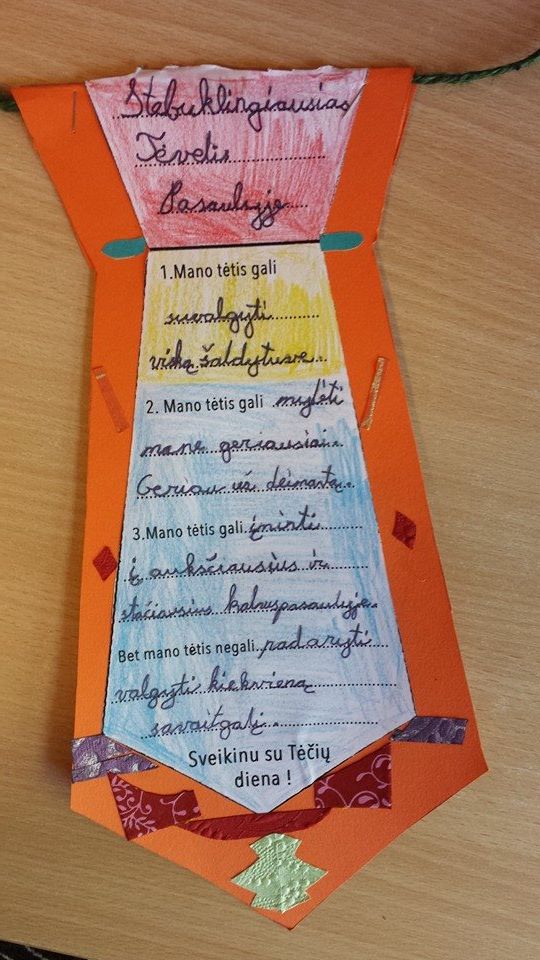 Stebuklingiausias
Tėvelis
Pasaulyje
1.Mano tėtis gali
suvalgyti
viską šaldytuve.
2. Mano tėtis gali mylėti
mane geriausiai.
Geriau už deimantą.
3.Mano tėtis gali įminti
į aukščiausius ir
stačiausius kalnus pasaulyje.
Bet mano tėtis negali padaryti
valgyti kiekvieną
savaitgalį.
Sveikinu su Tėčių
diena !